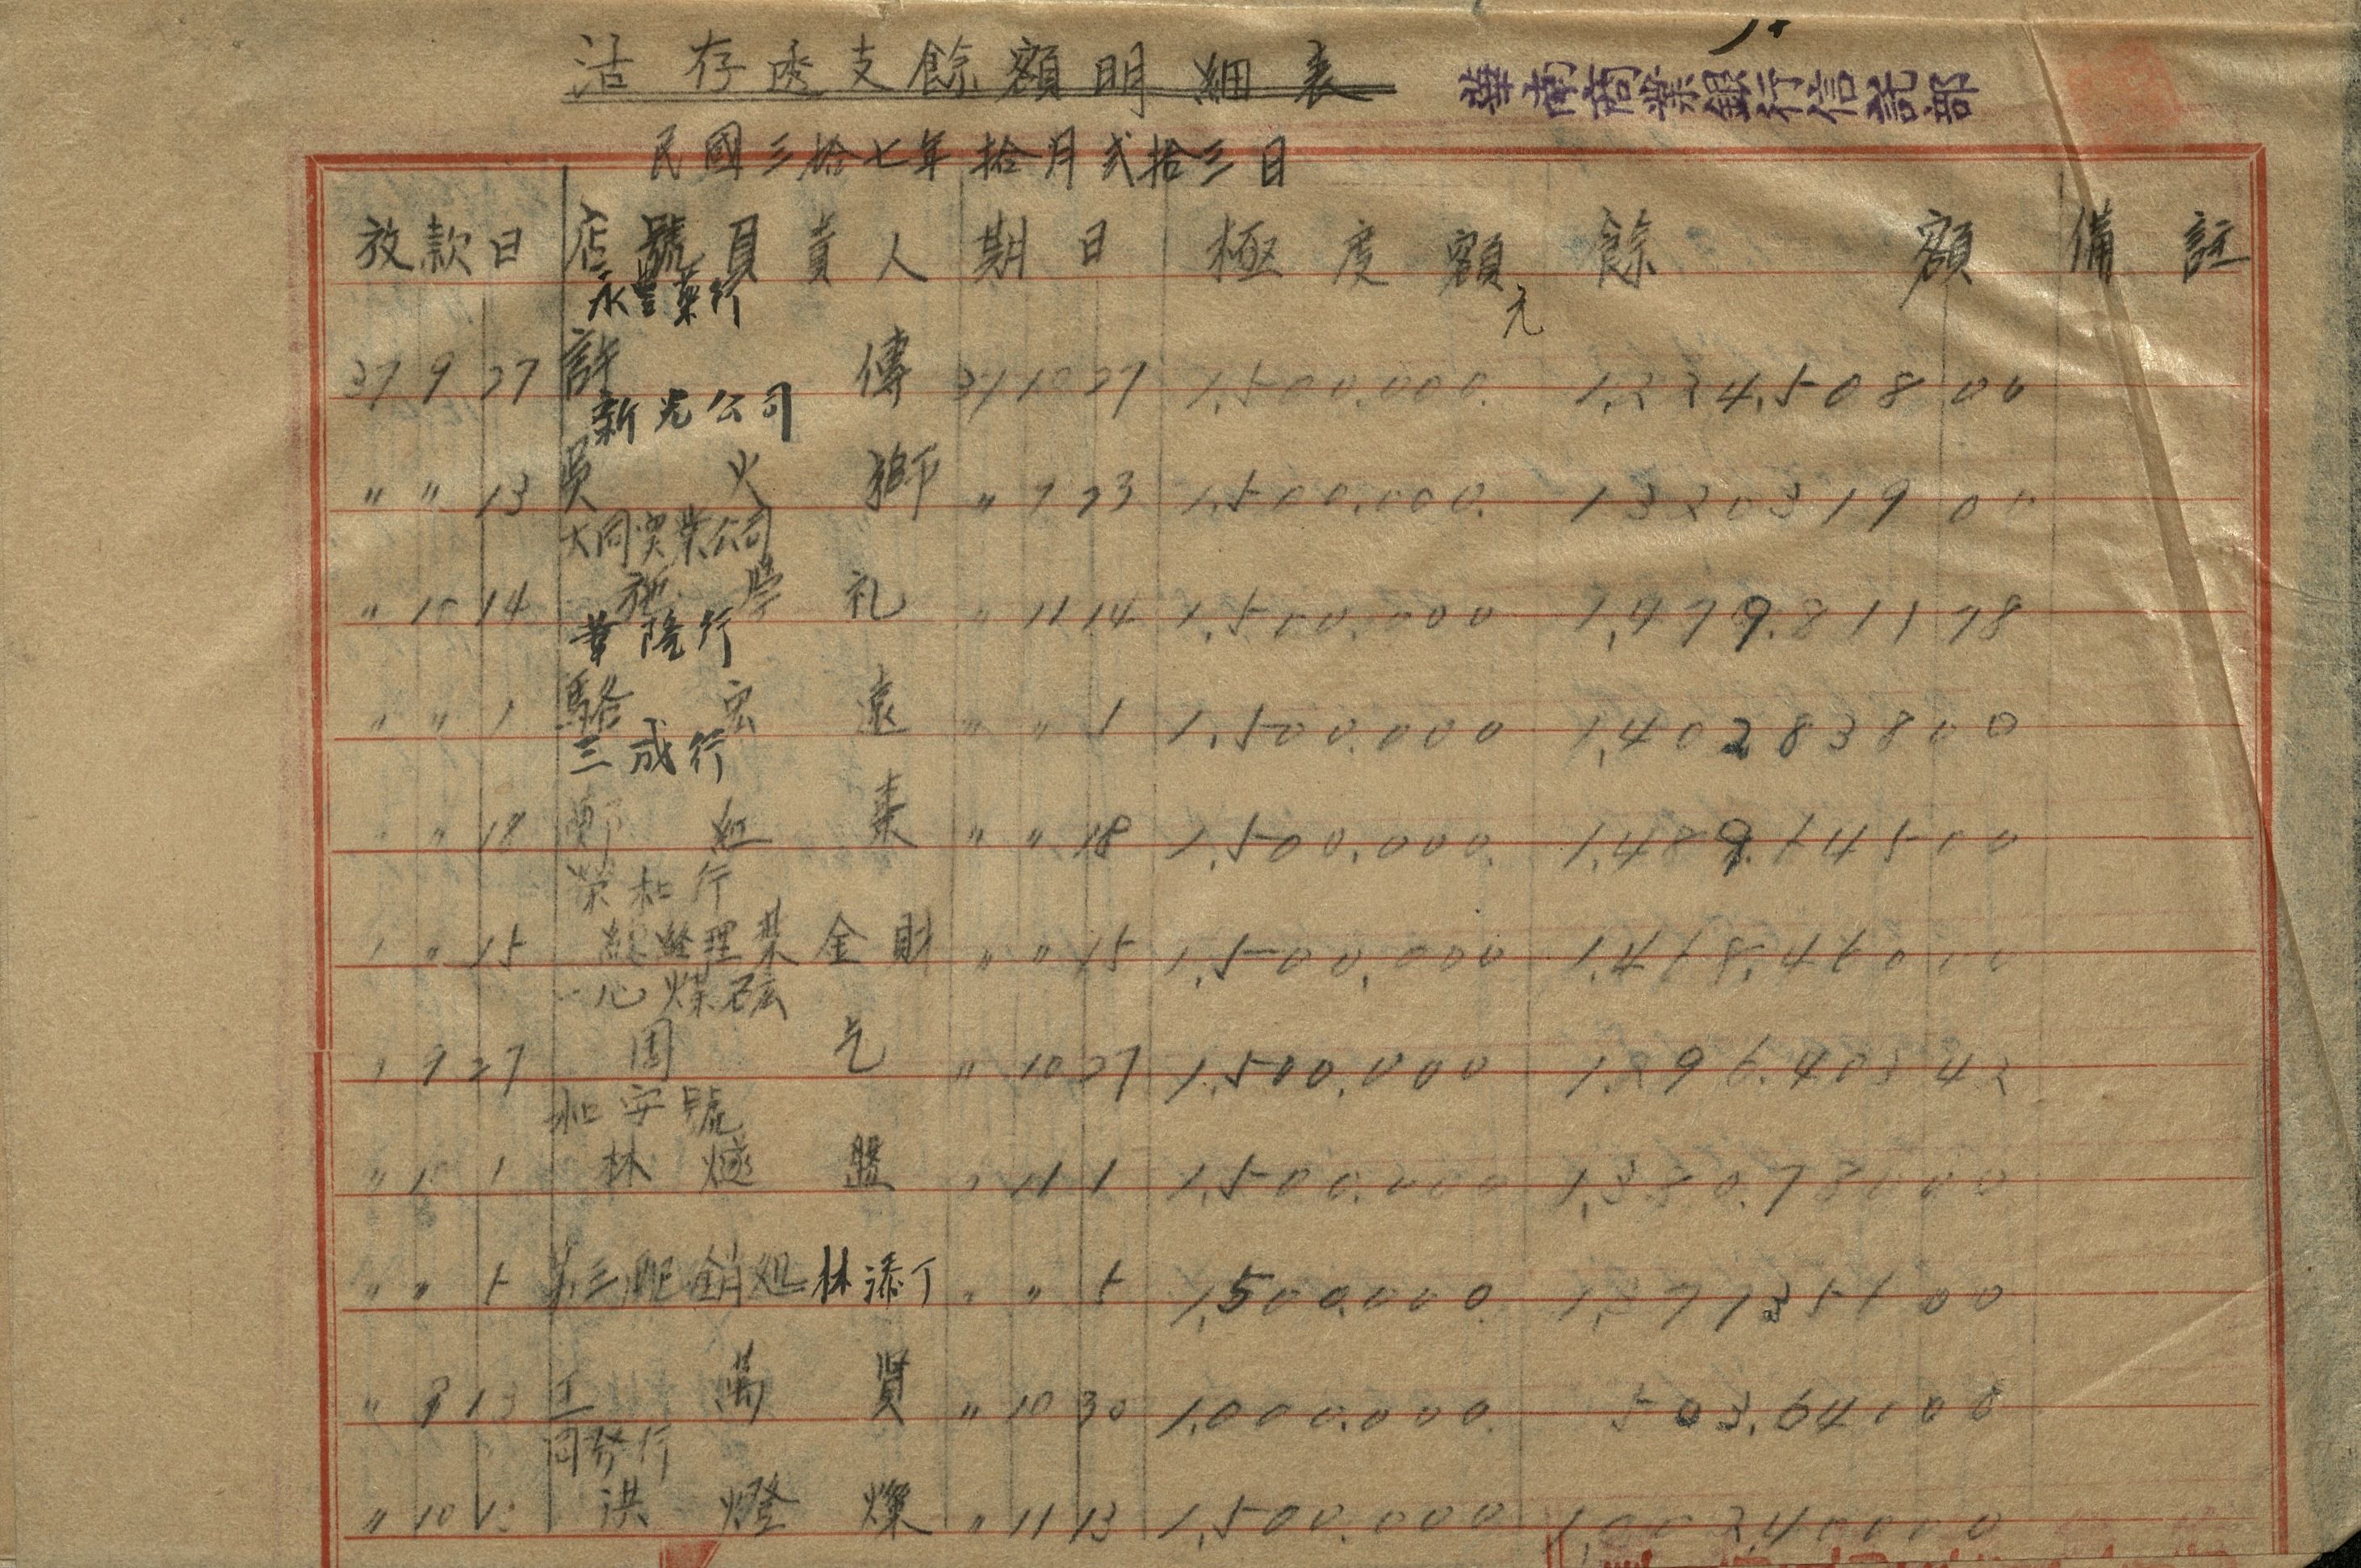 活存透支餘額明細表
華南商業銀行信託部
民國三拾七年拾月貳拾三日
放款日 店號負責人 期日 極度額 餘額 備註
永豐藥行 元
37 9 27 許 傳 37 10 27 1,500,000. 1,224,508 00
新光公司
〃 〃 13 吳火獅 〃 1,500,000. 1320319 00
大同實業公司
〃 10 14 學礼 〃 11 14 1,500,000 1,479,811 78
華隆行
〃 〃 1 駱宏遠 〃 〃 1 1,500,000 1,402838 00
三成行
〃 〃 18 鄭紅棗 〃 〃 18 1,500,000. 00
榮和行
〃 〃 15 總經理葉金財 〃 〃 15 1,500,000
一心煤砿
〃 9 27 周 乞 〃 10 27 1,500,000 1,296,403 42
和安號
〃 10 1 林 盤 〃 11 1 1,500,000 00
〃 〃 5 第三配銷処林添丁 〃 〃 5 1,500,000. 00
〃 9 13 王萬賢 〃 10 30 1,000,000. 503,641 00
同發行
〃 10 13 洪燈燦 〃 11 13 1,500,000 1,002,400 00